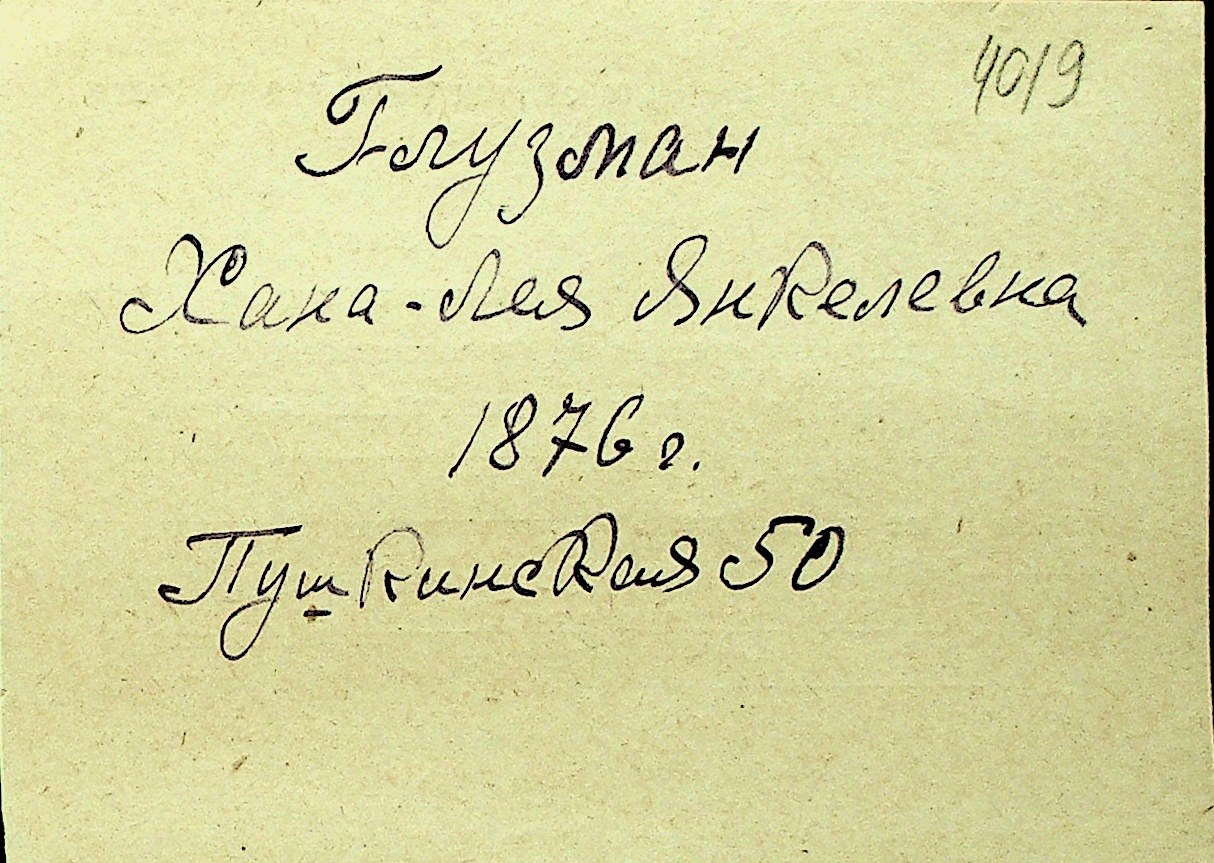 4019
Глузман
Хана-Лея Янкелевна
1876 г.
Пушкинская 50